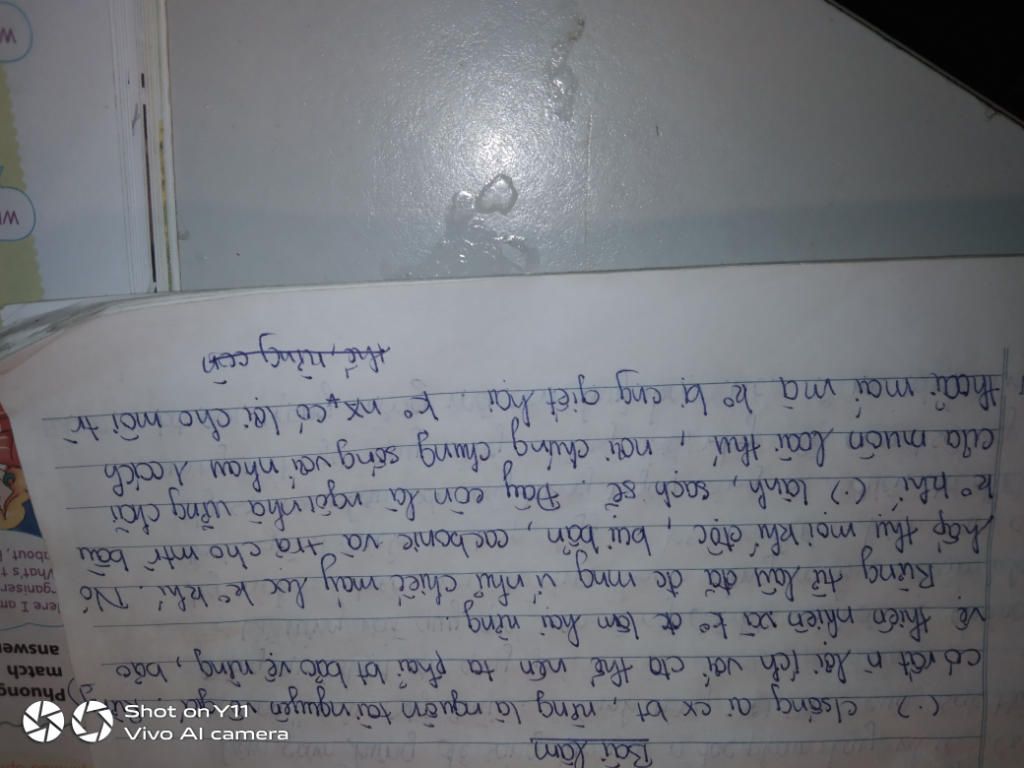 Bài làm
(.) c/sống ai cx bt rừng là nguồn tài nguyên
có rất n lợi ích với cta thế nên ta phải bt bảo vệ rừng, bảo
vệ thiên nhiên và ko đc làm hại rừng.
Rừng từ lâu đã đc mng ví như chiếc máy lọc ko khí. Nó
hấp thụ mọi khí độc, bụi bẩn, cacbonic và trả cho mtr bầu
ko khí (.) lành, sạch sẽ. Đây còn là ngôi nhà chung
của muôn loài thú, nơi chúng chung sống với nhau 1 cách
thoải mái mà ko bị cng giết hại. Ko nx có lợi cho môi tr
thế, rừng còn
Phuong
match
answer
Here I am
organiser
What's t
about,
W
Wi
Shot on Y11
Vivo AI camera